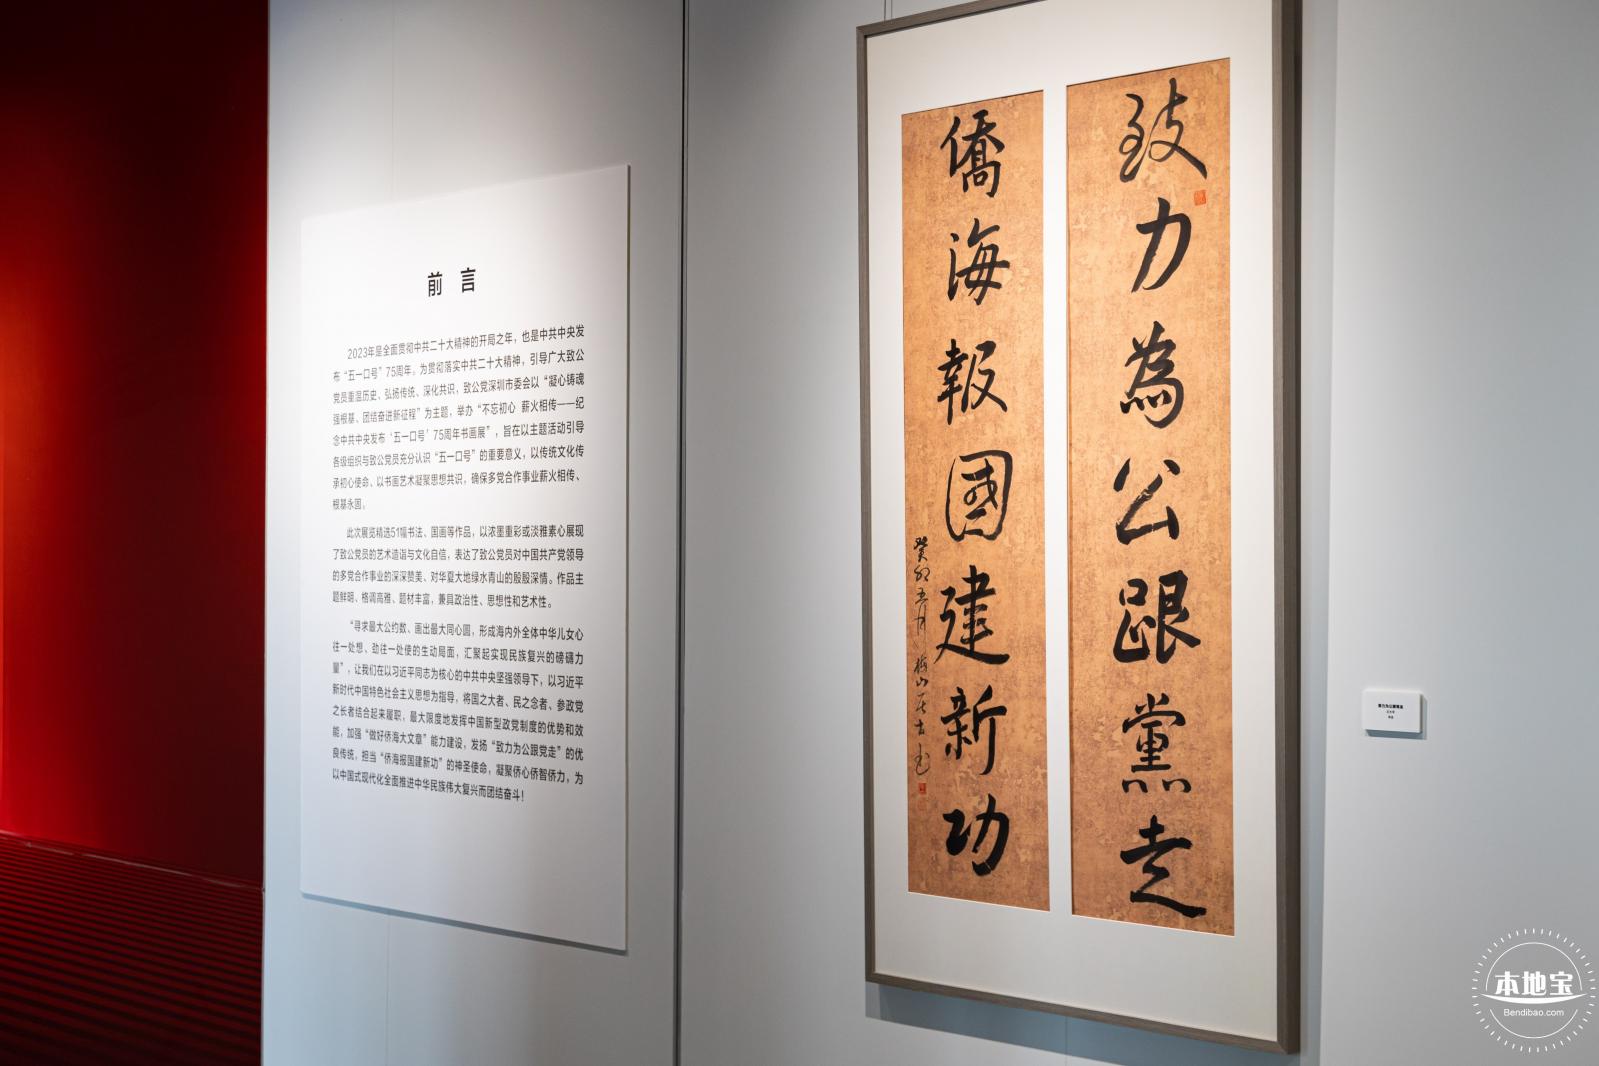 前 言
2023年是全面贯彻中共二十大精神的开局之年，也是中共中央发
布“五一口号”75周年。为贯彻落实中共二十大精神，引导广大致公
党员重温历史、弘扬传统、深化共识，致公党深圳市委会以“凝心铸魂
强根基、团结奋进新征程”为主题，举办“不忘初心 薪火相传——纪
念中共中央发布‘五一口号’75周年书画展”，旨在以主题活动引导
各级组织与致公党员充分认识“五一口号”的重要意义，以传统文化传
承初心使命、以书画艺术凝聚思想共识，确保多党合作事业薪火相传、
根基永固。
此次展览精选51幅书法、国画等作品，以浓墨重彩或淡雅素心展现
了致公党员的艺术造诣与文化自信，表达了致公党员对中国共产党领导
的多党合作事业的深深赞美、对华夏大地绿水青山的殷殷深情。作品主
题鲜明、格调高雅、题材丰富，兼具政治性、思想性和艺术性。
“寻求最大公约数、画出最大同心圆，形成海内外全体中华儿女心
往一处想、劲往一处使的生动局面，汇聚起实现民族复兴的磅礴力
量”，让我们在以习近平同志为核心的中共中央坚强领导下，以习近平
新时代中国特色社会主义思想为指导，将国之大者、民之念者、参政党
之长者结合起来履职，最大限度地发挥中国新型政党制度的优势和效
能，加强“做好侨海大文章”能力建设，发扬“致力为公跟党走”的优
良传统，担当“侨海报国建新功”的神圣使命，凝聚侨心侨智侨力，为
以中国式现代化全面推进中华民族伟大复兴而团结奋斗！
致力為公跟黨走
僑海報國建新功
癸卯五月
本地宝
Bendibao.com